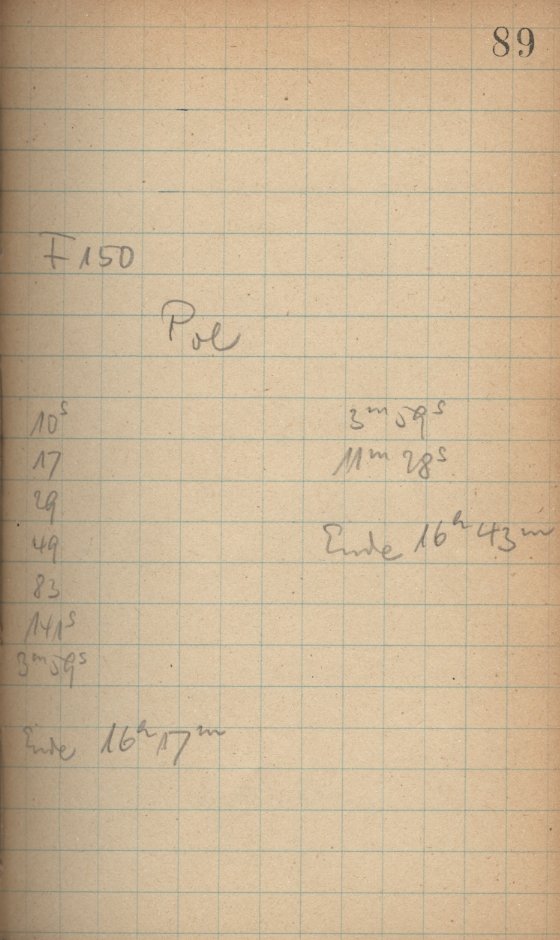 89
F 150
Pol
10s
17
29
49
83
141s
3m 59s
Ende 16h 17m
3m 59s
11m 28s
Ende 16h 43m